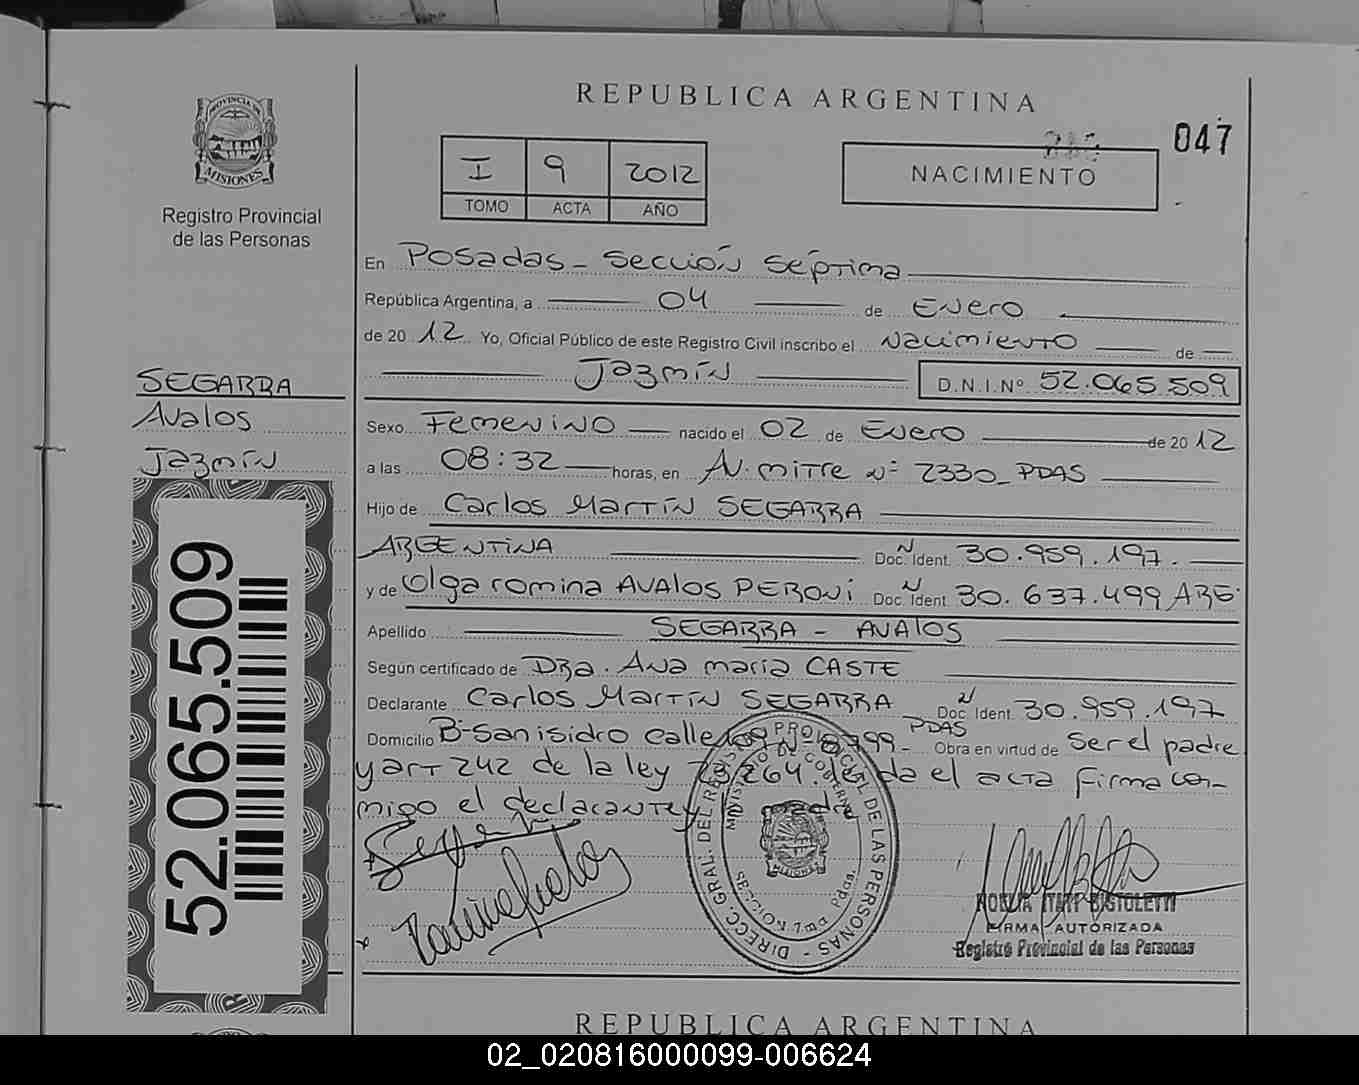 REPUBLICA ARGENTINA
047
PROVINCIA DE
MISIONES
Registro Provincial
de las Personas
I 9 2012
TOMO ACTA AÑO
NACIMIENTO
En Posadas - Sección Séptima
República Argentina, a 04 de Enero
de 2012 Yo, Oficial Público de este Registro Civil inscribo el Nacimiento de
Jazmín D.N.I.Nº 52.065.509
SEGARRA
Avalos
Jazmín
Sexo Femenino nacido el 02 de Enero de 2012
a las 08:32 horas, en AV. mitre Nº 2330_PDAS
Hijo de Carlos Martín SEGARRA
ARGENTINA Doc. Ident. 30.959.197.
y de Olga romina AVALOS PERONI Doc. Ident 30.637.499 ARG.
Apellido SEGARRA - AVALOS
Según certificado de Dra. Ana maría CASTE
Declarante Carlos Martín SEGARRA Doc. Ident. 30.959.197
Domicilio B-San isidro calle 109 N-8799- PDAS Obra en virtud de Ser el padre
y art 242 de la ley 264. da el acta firma con-
migo el declarante y
52.065.509
DIRECC. GRAL. DEL REGISTRO PROVINCIAL DE LAS PERSONAS
MINISTERIO DE GOBIERNO
MISIONES
SECCION 7ma Pdas.
NOELIA ITATI BISTOLETTI
FIRMA AUTORIZADA
Registro Provincial de las Personas
REPUBLICA ARGENTINA
02_020816000099-006624